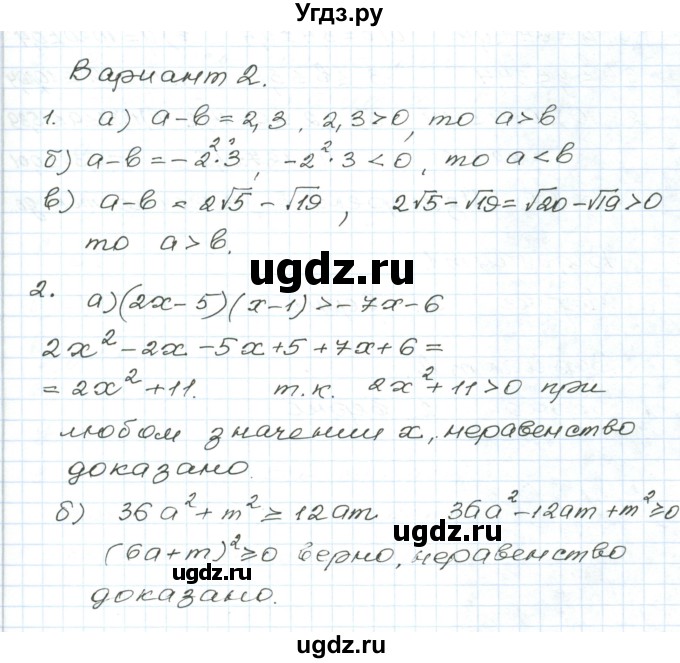 Угдз.ру
Вариант 2.
1. а) а-в = 2,3, 2,3>0, то а>в
б) а-в = -2²·3³, -2²·3<0, то а<в
в) а-в = 2√5 - √19, 2√5-√19=√20-√19>0
то а>в.
ugdz.ru
2. а) (2х-5)(х-1)>-7х-6
2х²-2х-5х+5+7х+6=
=2х²+11. т.к. 2х²+11>0 при
любом значении х, неравенство
доказано.
б) 36а²+m² ≥ 12am 36а²-12am+m²≥0
ugdz.ru
(6а+m)²≥0 верно, неравенство
ugdz.ru
доказано.
ugdz.ru